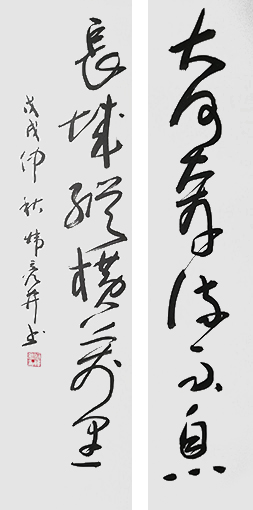 大河奔流不息
長城縱橫萬里
戊戌仲秋